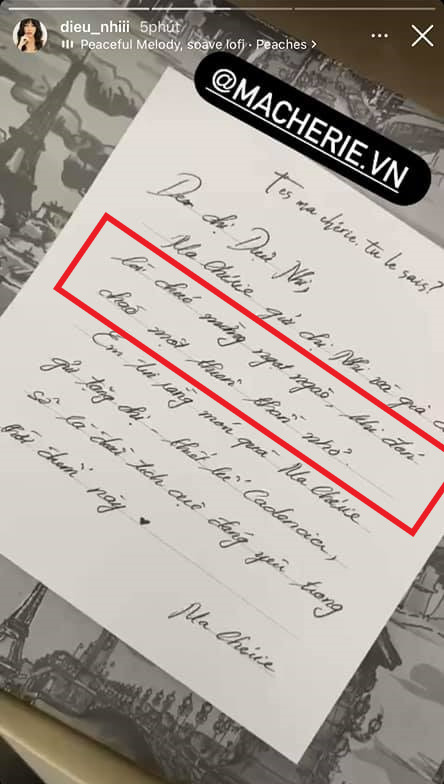 dieu_nhiii 5phút
Peaceful Melody, soave lofi · Peaches >
@MACHERIE.VN
T'es ma chérie, tu le sais?
Dear chị Diệu Nhi,
Ma Chérie gửi chị Nhi và gia đ
lời chúc mừng ngọt ngào, khi đón
chào một thiên thần nhỏ.
Em hi vọng món quà Ma Chérie
gửi tặng chị thiết kế Cadencia,
sẽ là dấu tích cực đáng yêu trong
thời điểm này ♥
Ma Chérie